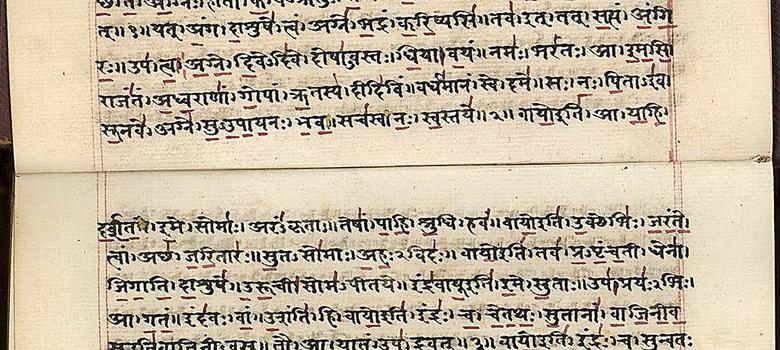 त्॥६॥यत्।अंग।दाशुषे।त्वं।अग्ने।भद्रं।करिष्यसि॥तव।इत्।तत्।सत्यं।अंगि
रः॥उप।त्वा।अग्ने।दिवेऽदिवे।दोषाऽवस्तः।धिया।वयं।नमः।भरंतः।आ।इमसि
राजंतं।अध्वराणां।गोपां।ऋतस्य।दीदिविं॥वर्धमानं।स्वे।दमे॥सः।नः।पिताऽइव।
सूनवे।अग्ने।सुऽउपायनः।भव॥सचस्व।नः।स्वस्तये॥२॥वायोइति।आ।याहि।
दर्शत।इमे।सोमाः।अरंऽकृताः॥तेषां।पाहि।श्रुधि।हवं॥वायोइति।उक्थेभिः।जरंते।
त्वां।अच्छ।जरितारः॥सुतऽसोमाः।अहःऽविदः॥वायोइति।तव।प्रऽपृंचती।धेना।
जिगाति।दाशुषे॥उरूची।सोमऽपीतये॥इंद्रवायूइति।इमे।सुताः॥उप।प्रयःऽभिः।
आ।गतं॥इंदवः।वां।उशंति।हि॥वायोइति।इंद्रः।च।चेतथः।सुतानां।वाजिनीव
सूइतिवाजिनीऽवसू॥तौ।आ।यातं।उप।द्रवत्॥३॥वायोइति।इंद्रः।च।सुन्वतः